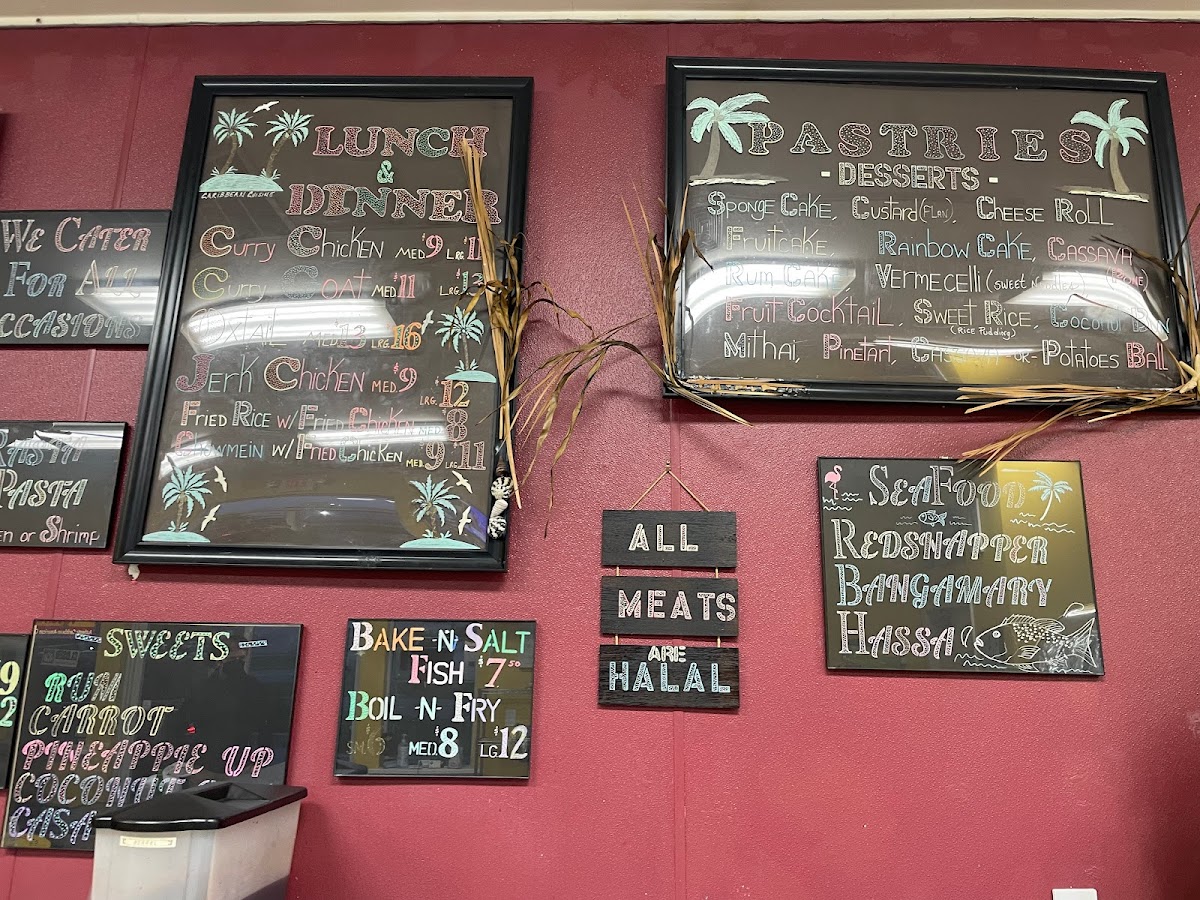 We Cater
For All
Occasions
Rasta
Pasta
or Shrimp
Lunch
&
Dinner
Caribbean Cuisine
Curry Chicken MED $9 LRG
Curry Goat MED $11 LRG
Oxtail MED $13 LRG $16
Jerk Chicken MED $9
LRG $12
Fried Rice w/ Fried Chicken MED $8
Chowmein w/ Fried Chicken MED $9 LRG $11
Pastries
- Desserts -
Sponge Cake, Custard (Flan), Cheese Roll
Fruitcake, Rainbow Cake, Cassava
Rum Cake Vermecelli (Sweet Noodles) (Pone)
Fruit Cocktail, Sweet Rice, Coconut Bun
(Rice Pudding)
Mithai, Pinetart, Cassava -or- Potatoes Ball
All
Meats
Are
Halal
SeaFood
Redsnapper
Bangamary
Hassa
9
2
Sweets
Rum
Carrot
Pineapple Up
Coconut
Casa
Bake -N- Salt
Fish $7.50
Boil -N- Fry
SM. MED. $8 LG. $12